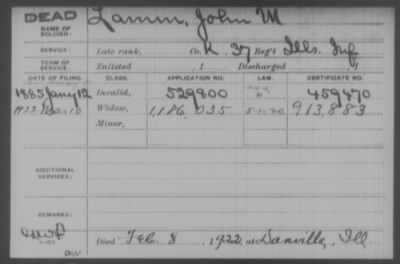 DEAD
NAME OF SOLDIER: Lamm, John M
SERVICE: Late rank, Co. K. 37 Reg't Ills. Inf.
TERM OF SERVICE: Enlisted , 1 Discharged , 1
DATE OF FILING. CLASS. APPLICATION NO. LAW. CERTIFICATE NO.
1885 Jany 12 Invalid, 529800 459470
1922 Mar 10 Widow, 1,186,035 5-1-20 913,883
Minor,
ADDITIONAL SERVICES:
REMARKS:
Died Feb. 8 , 1922, at Danville, Ill.